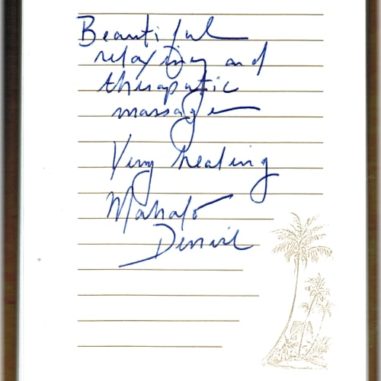 Beautiful
relaxing and
theraputic
massage
Very healing
Mahalo